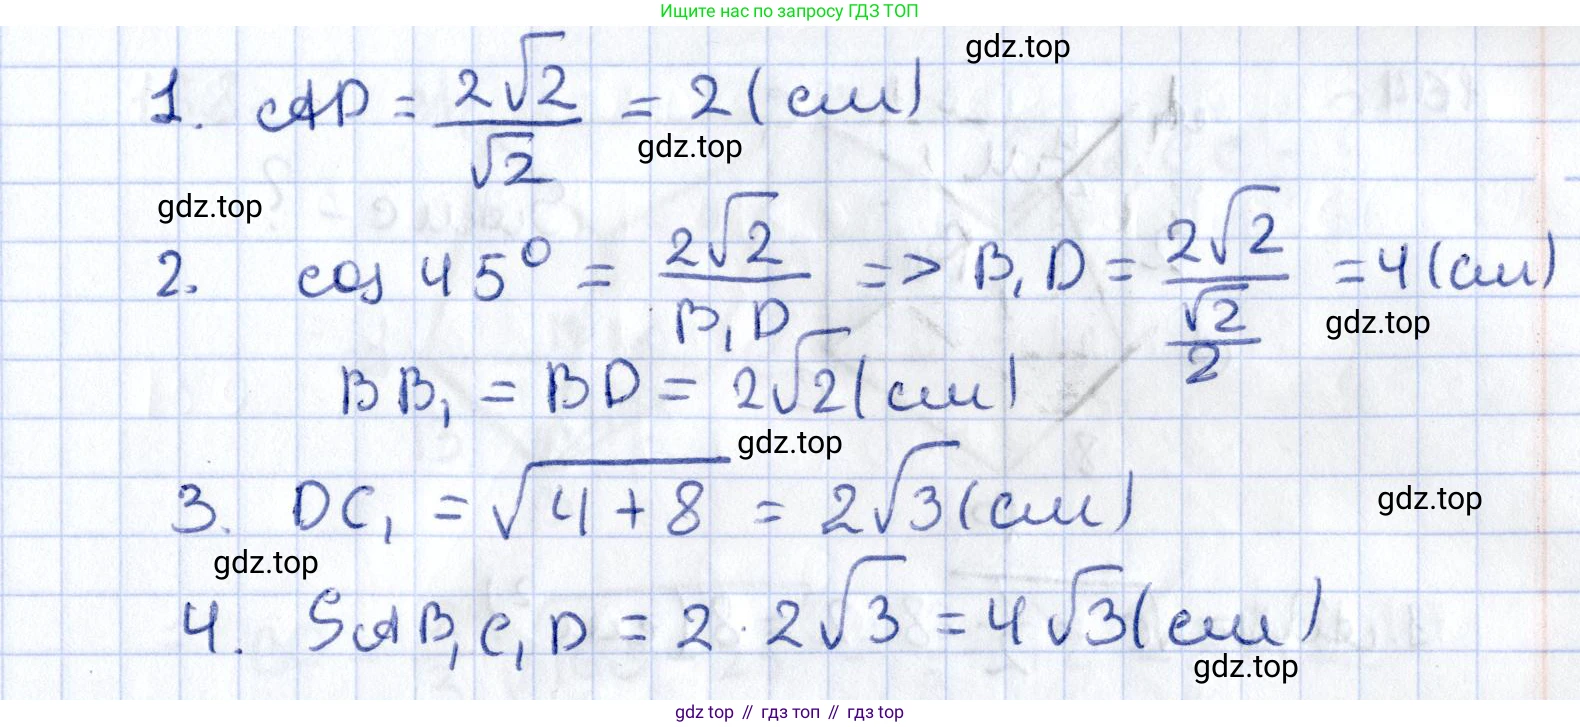 Ищите нас по запросу ГДЗ ТОП
gdz.top
1. AD = 2√2/√2 = 2 (см)
gdz.top
gdz.top
2. cos 45° = 2√2/B₁D => B₁D = 2√2/(√2/2) = 4 (см)
gdz.top
BB₁ = BD = 2√2 (см)
gdz.top
3. DC₁ = √(4+8) = 2√3 (см)
gdz.top
gdz.top
4. SAB₁C₁D = 2 · 2√3 = 4√3 (см)
gdz.top
gdz top // гдз топ // гдз top